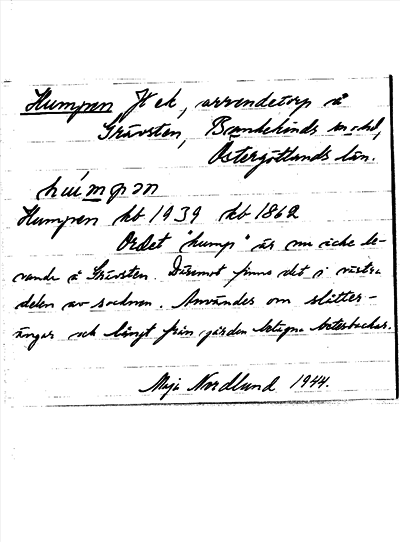 Humpen Jt ek, arrendetorp å
Grävsten, Bankekinds sn o. hd,
Östergötlands län.
húmpən
Humpen kb 1939 kb 1862
Ordet "hump" är nu icke le-
vande å Grävsten. Däremot finns det i västra
delen av socknen. Användes om slåtter-
ängar och långt från gården belägna betesbackar.
Maja Nordlund 1944.